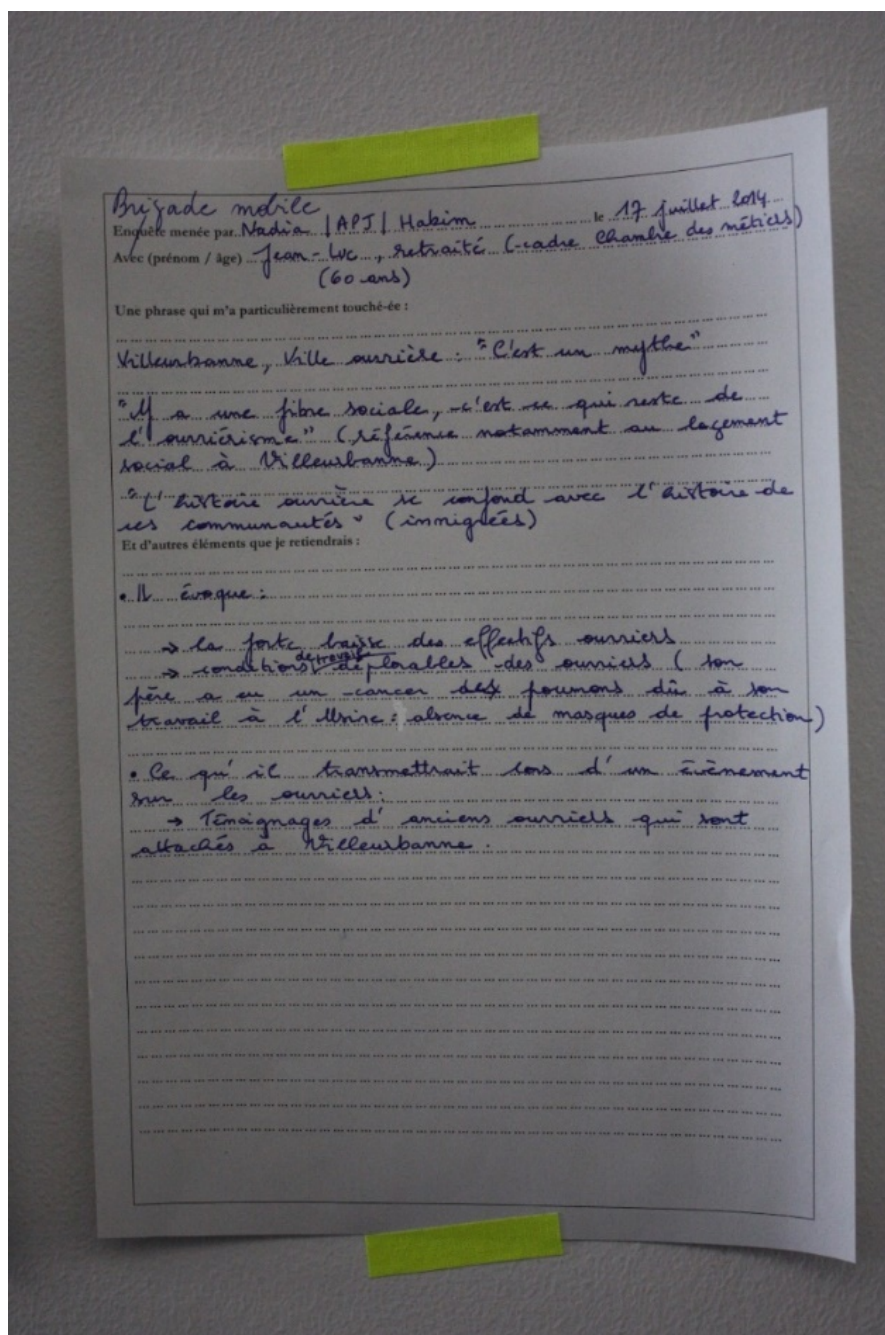 Brigade mobile
Enquête menée par Nadia / APJ / Habim le 17 juillet 2014
Avec (prénom / âge) Jean-Luc, retraité (cadre Chambre des métiers)
(60 ans)
Une phrase qui m'a particulièrement touché-ée :
Villeurbanne, Ville ouvrière : "C'est un mythe"
"Y a une fibre sociale, c'est ce qui reste de
l'ouvriérisme" (référence notamment au logement
social à Villeurbanne)
"L'histoire ouvrière se confond avec l'histoire de
ses communautés" (immigrées)
Et d'autres éléments que je retiendrais :
• Il évoque :
→ la forte baisse des effectifs ouvriers
→ conditions de travail déplorables des ouvriers (son
père a eu un cancer des poumons dû à son
travail à l'Usine : absence de masques de protection)
• Ce qu'il transmettrait lors d'un évènement
sur les ouvriers :
→ Témoignages d'anciens ouvriers qui sont
attachés à Villeurbanne.